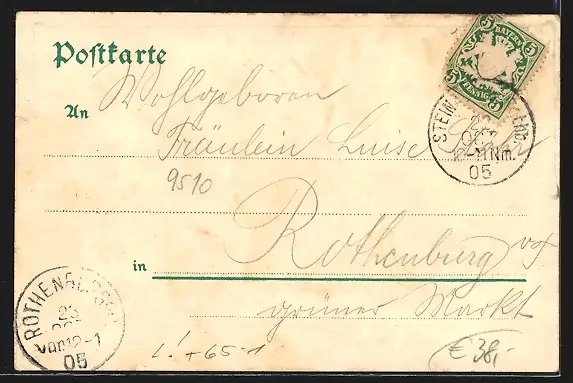 Postkarte
5 BAYERN 5
5 PFENNIG 5
An Wohlgeboren
Fräulein Luise
STEIN
22
Nm.
05
9510
Rothenburg o/
in
grüner Markt
ROTHENBURG
23
Vor 12-1
05
L! + 65-1
€ 38,-